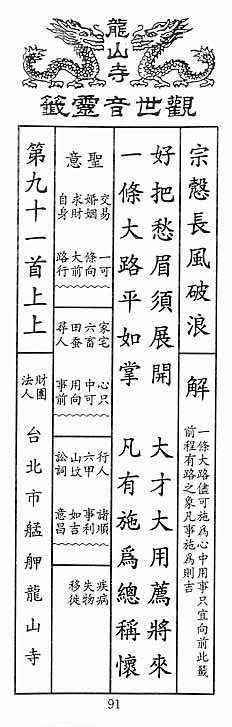 龍山寺
觀世音靈籤
宗慤長風破浪
解
一條大路儘可施為心中用事只宜向前此籤
前程有路之象凡事施為則吉
好把愁眉須展開　大才大用薦將來
一條大路平如掌　凡有施為總稱懷
聖意
交易
婚姻
求財
自身
一條大路
可向前行
家宅
六畜
田蚕
尋人
心中用事
只可向前
行人
六甲
山墳
訟詞
諸事如意
順利吉昌
疾病
失物
移徙
第九十一首上上
財團
法人
台北市艋舺龍山寺
91